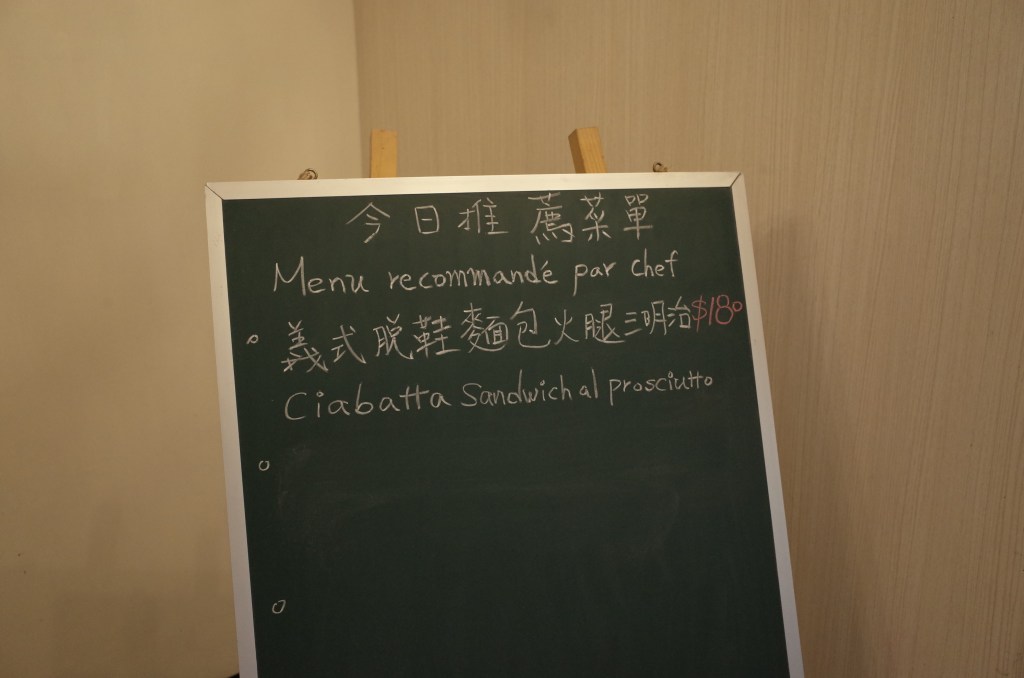 今日推薦菜單
Menu recommandé par chef
義式脱鞋麵包火腿三明治$180
Ciabatta Sandwich al prosciutto